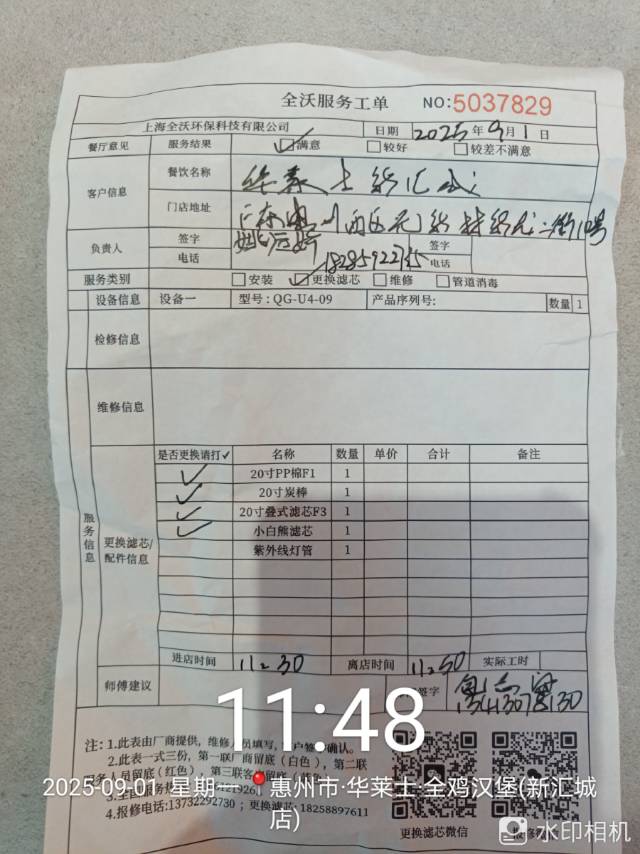 全沃服务工单 NO:5037829
上海全沃环保科技有限公司 日期 2025年9月1日
餐厅意见 服务结果 ☑满意 □较好 □较差不满意
客户信息 餐饮名称 华莱士新汇城店
门店地址
负责人 签字 签字
电话 18285922735 电话
服务类别 □安装 ☑更换滤芯 □维修 □管道消毒
设备信息 设备一 型号: QG-U4-09 产品序列号: 数量 1
检修信息
维修信息
服务信息
更换滤芯/配件信息
是否更换请打✓ 名称 数量 单价 合计 备注
✓ 20寸PP棉F1 1
✓ 20寸炭棒 1
✓ 20寸叠式滤芯F3 1
✓ 小白熊滤芯 1
紫外线灯管 1
进店时间 11:30 离店时间 11:50 实际工时
师傅建议 签字
11:48
注: 1.此表由厂商提供, 维修人员填写, 客户签字确认。
2.此表一式三份, 第一联厂商留底(白色), 第二联
服务人员留底(红色), 第三联客户留底
4.报修电话:13732292730; 更换滤芯: 18258897611
更换滤芯微信
2025-09-01 星期一 惠州市·华莱士·全鸡汉堡(新汇城店)
水印相机